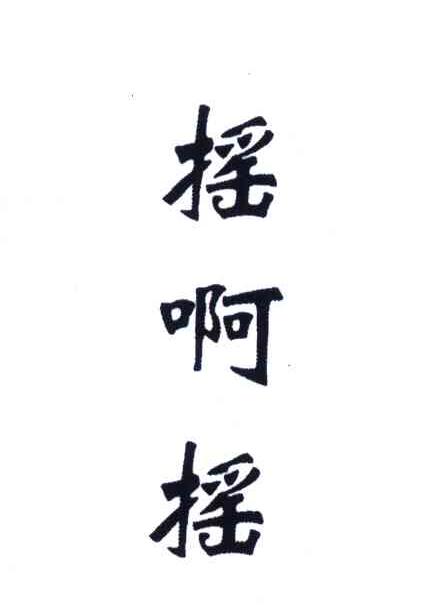 摇啊摇